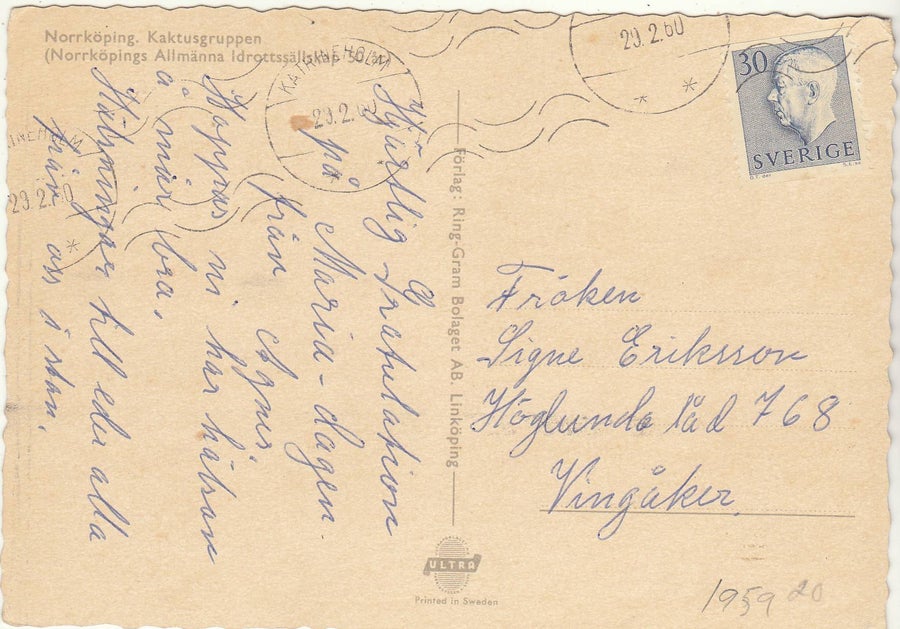 Norrköping. Kaktusgruppen
(Norrköpings Allmänna Idrottssällskap 50 år)
KATRINEHOLM
29.2.60
29.2.60
INEHOLM
29.2.60
30
SVERIGE
Hjärtlig Gratulation
på Maria-dagen.
från Agnes.
Hoppas ni har hälsan
å mår bra.
Hälsningar till eder alla
från oss i stan.
Förlag: Ring-Gram Bolaget AB. Linköping
Fröken
Signe Eriksson
Höglunda låd 768
Vingåker.
ULTRA
Printed in Sweden
1959 20